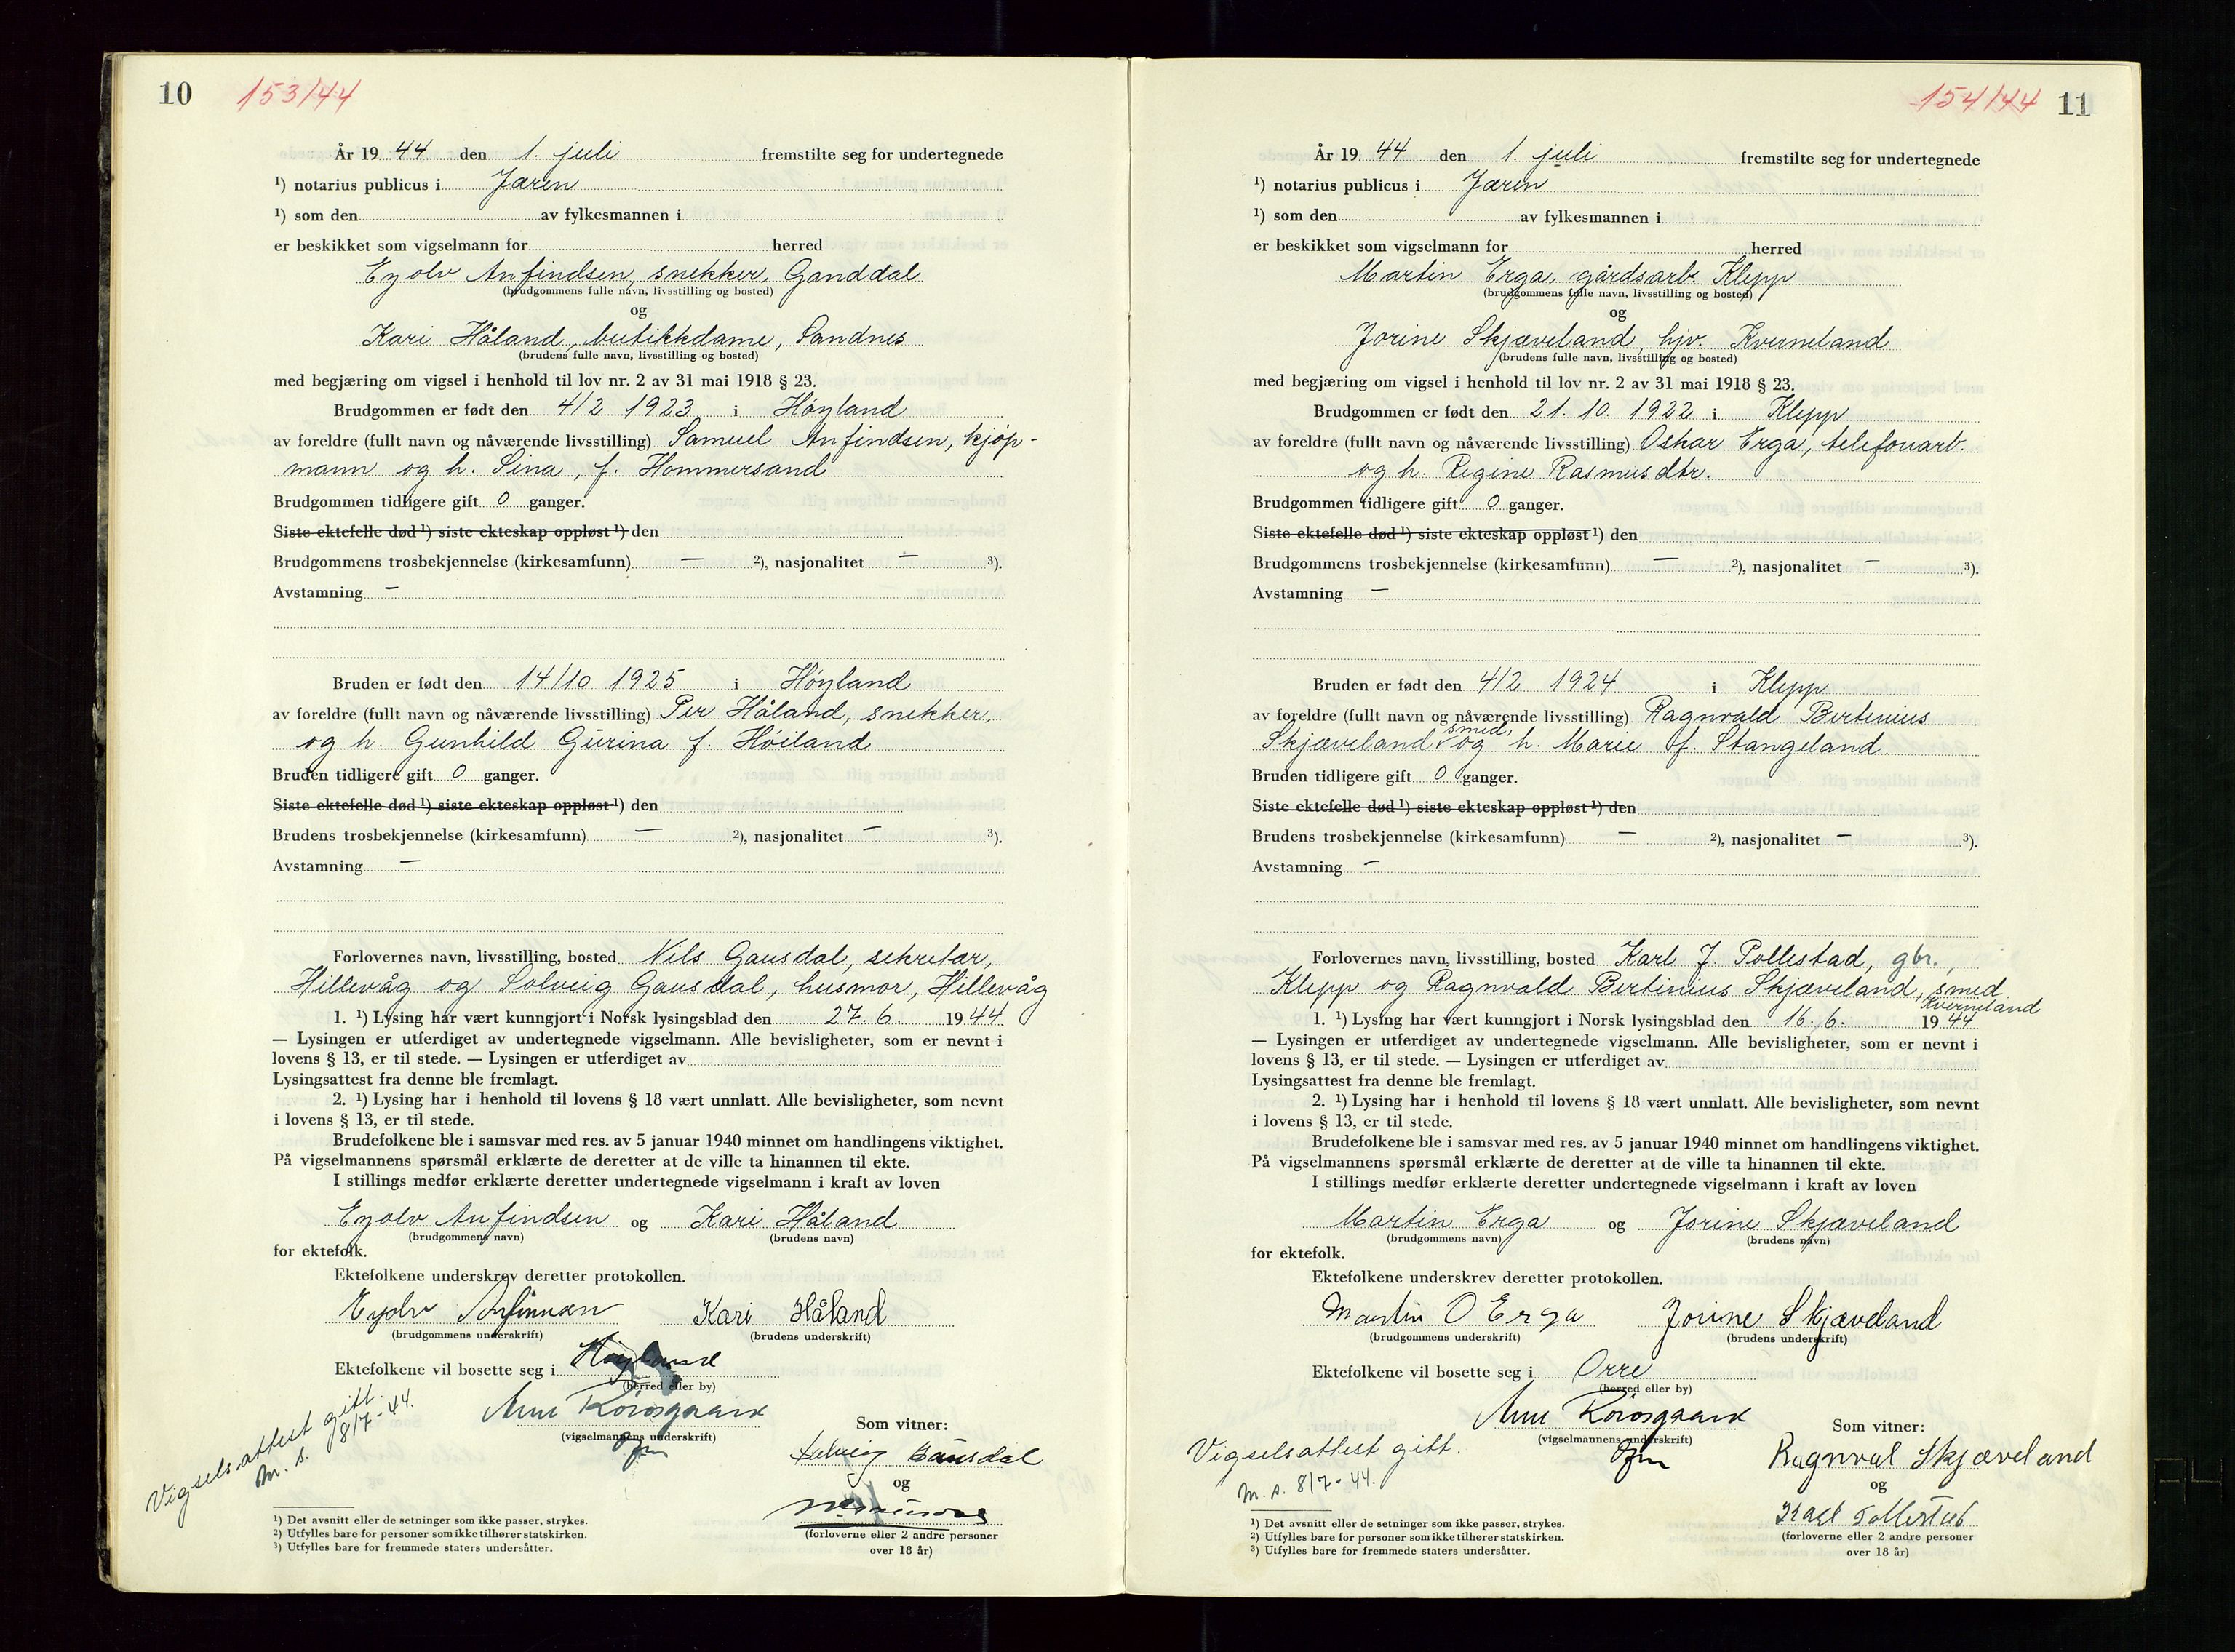 10 153/44
År 19 44 den 1. juli fremstilte seg for undertegnede
¹) notarius publicus i Jæren
¹) som den av fylkesmannen i
er beskikket som vigselmann for herred
Eyolv Anfindsen, snekker, Ganddal
(brudgommens fulle navn, livsstilling og bosted)
og
Kari Håland, butikkdame, Sandnes
(brudens fulle navn, livsstilling og bosted)
med begjæring om vigsel i henhold til lov nr. 2 av 31 mai 1918 § 23.
Brudgommen er født den 4/2 1923 i Høyland
av foreldre (fullt navn og nåværende livsstilling) Samuel Anfindsen, kjøp-
mann og h. Sina, f. Hommersand
Brudgommen tidligere gift 0 ganger.
Siste ektefelle død ¹) siste ekteskap oppløst ¹) den
Brudgommens trosbekjennelse (kirkesamfunn) — ²), nasjonalitet — ³).
Avstamning —
Bruden er født den 14/10 1925 i Høyland
av foreldre (fullt navn og nåværende livsstilling) Per Håland, snekker,
og h. Gunhild Gurina f. Høiland
Bruden tidligere gift 0 ganger.
Siste ektefelle død ¹) siste ekteskap oppløst ¹) den
Brudens trosbekjennelse (kirkesamfunn) — ²), nasjonalitet — ³).
Avstamning —
Forlovernes navn, livsstilling, bosted Nils Gausdal, sekretær,
Hillevåg og Solveig Gausdal, husmor, Hillevåg
1. ¹) Lysing har vært kunngjort i Norsk lysingsblad den 27. 6. 19 44.
— Lysingen er utferdiget av undertegnede vigselmann. Alle bevisligheter, som er nevnt i
lovens § 13, er til stede. — Lysingen er utferdiget av
Lysingsattest fra denne ble fremlagt.
2. ¹) Lysing har i henhold til lovens § 18 vært unnlatt. Alle bevisligheter, som nevnt
i lovens § 13, er til stede.
Brudefolkene ble i samsvar med res. av 5 januar 1940 minnet om handlingens viktighet.
På vigselmannens spørsmål erklærte de deretter at de ville ta hinannen til ekte.
I stillings medfør erklærte deretter undertegnede vigselmann i kraft av loven
Eyolv Anfindsen og Kari Håland
(brudgommens navn) (brudens navn)
for ektefolk.
Ektefolkene underskrev deretter protokollen.
Eyolv Anfinnsen Kari Håland
(brudgommens underskrift) (brudens underskrift)
Ektefolkene vil bosette seg i Høyland
(herred eller by)
Vigselsattest gitt.
M. S. 8/7-44.
(vigselmannens underskrift)
Som vitner:
Solveig Gausdal
og
(forloverne eller 2 andre personer
over 18 år)
¹) Det avsnitt eller de setninger som ikke passer, strykes.
²) Utfylles bare for personer som ikke tilhører statskirken.
³) Utfylles bare for fremmede staters undersåtter.
154/44 11
År 19 44 den 1. juli fremstilte seg for undertegnede
¹) notarius publicus i Jæren
¹) som den av fylkesmannen i
er beskikket som vigselmann for herred
Martin Erga, gårdsarb. Klepp
(brudgommens fulle navn, livsstilling og bosted)
og
Jorine Skjæveland, hjv. Kverneland
(brudens fulle navn, livsstilling og bosted)
med begjæring om vigsel i henhold til lov nr. 2 av 31 mai 1918 § 23.
Brudgommen er født den 21. 10. 1922 i Klepp
av foreldre (fullt navn og nåværende livsstilling) Oskar Erga, telefonarb.
og h. Regine Rasmusdtr.
Brudgommen tidligere gift 0 ganger.
Siste ektefelle død ¹) siste ekteskap oppløst ¹) den
Brudgommens trosbekjennelse (kirkesamfunn) — ²), nasjonalitet — ³).
Avstamning —
Bruden er født den 4/2 1924 i Klepp
av foreldre (fullt navn og nåværende livsstilling) Ragnvald Bertinius
Skjæveland, smed, og h. Marie f. Stangeland
Bruden tidligere gift 0 ganger.
Siste ektefelle død ¹) siste ekteskap oppløst ¹) den
Brudens trosbekjennelse (kirkesamfunn) — ²), nasjonalitet — ³).
Avstamning —
Forlovernes navn, livsstilling, bosted Karl J. Pollestad, gbr.,
Klepp og Ragnvald Bertinius Skjæveland, smed
Kverneland
1. ¹) Lysing har vært kunngjort i Norsk lysingsblad den 16. 6. 19 44
— Lysingen er utferdiget av undertegnede vigselmann. Alle bevisligheter, som er nevnt i
lovens § 13, er til stede. — Lysingen er utferdiget av
Lysingsattest fra denne ble fremlagt.
2. ¹) Lysing har i henhold til lovens § 18 vært unnlatt. Alle bevisligheter, som nevnt
i lovens § 13, er til stede.
Brudefolkene ble i samsvar med res. av 5 januar 1940 minnet om handlingens viktighet.
På vigselmannens spørsmål erklærte de deretter at de ville ta hinannen til ekte.
I stillings medfør erklærte deretter undertegnede vigselmann i kraft av loven
Martin Erga og Jorine Skjæveland
(brudgommens navn) (brudens navn)
for ektefolk.
Ektefolkene underskrev deretter protokollen.
Martin O Erga Jorine Skjæveland
(brudgommens underskrift) (brudens underskrift)
Ektefolkene vil bosette seg i Orre
(herred eller by)
(vigselmannens underskrift)
Vigselsattest gitt.
M. S. 8/7-44.
Som vitner:
Ragnval Skjæveland
og
Karl Pollestad
(forloverne eller 2 andre personer
over 18 år)
¹) Det avsnitt eller de setninger som ikke passer, strykes.
²) Utfylles bare for personer som ikke tilhører statskirken.
³) Utfylles bare for fremmede staters undersåtter.